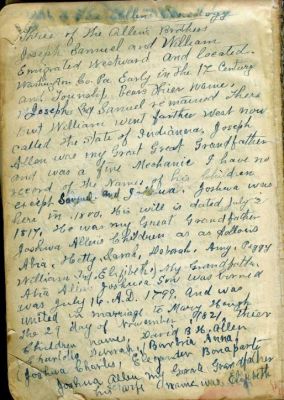 Allen Genealogy
Three of the Allen Brothers
Joseph Samuel and William
Emigrated Westward and Located
Washington Co. Pa Early in the 17 Century
and Township Bears Thier Name,
Joseph & Samuel remained There
but William went farther West now
called the State of Indianna, Joseph
Allen was my Great Great Grandfather
and was a fine Mechanic I have no
record of the Names of his Children
except Samuel and Joshua. Joshua was
here in 1800. His will is dated July 2
1817. He was my Great Grandfather
Joshua Allens Children are as follows
Abia, Hetty, Sarah, Deborah, Amy, Peggy
William Elizibeth, My Grandfather
Abia Allen Joshua Son was borned
was July 16. A.D. 1799, And was
united in marriage to Mary Hough
the 29 day of November 1821, Thier
Children names, David B H. Allen
Barbria Anna,
Joshua Charles, Elexander Bonaparte
Joshua Allen my Great Grandfather
his wife name was Elizibeth